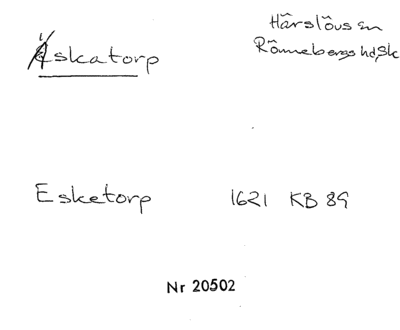 Äskatorp
Härslövs sn
Rönnebergs hd, Sk
Esketorp 1621 KB 89
Nr 20502